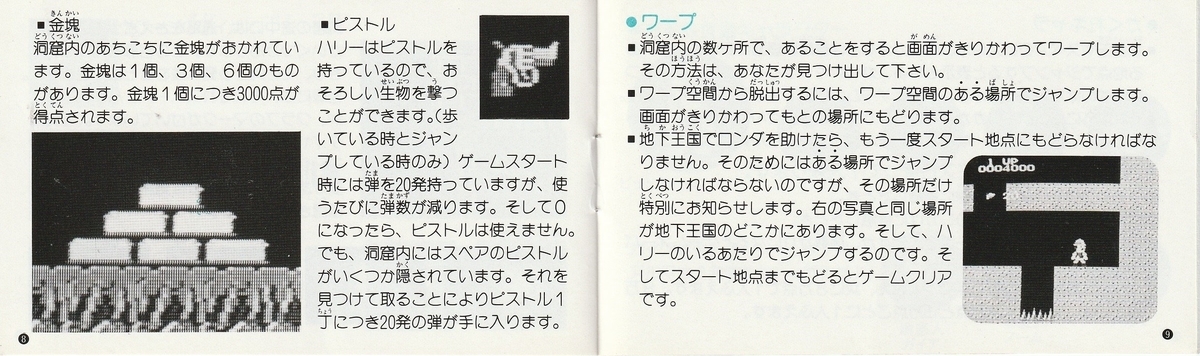 ■金塊
洞窟内のあちこちに金塊がおかれてい
ます。金塊は1個、3個、6個のもの
があります。金塊1個につき3000点が
得点されます。
8
■ピストル
ハリーはピストルを
持っているので、お
そろしい生物を撃つ
ことができます。(歩
いている時とジャン
プしている時のみ)ゲームスタート
時には弾を20発持っていますが、使
うたびに弾数が減ります。そして0
になったら、ピストルは使えません。
でも、洞窟内にはスペアのピストル
がいくつか隠されています。それを
見つけて取ることによりピストル1
丁につき20発の弾が手に入ります。
●ワープ
■洞窟内の数ヶ所で、あることをすると画面がきりかわってワープします。
その方法は、あなたが見つけ出して下さい。
■ワープ空間から脱出するには、ワープ空間のある場所でジャンプします。
画面がきりかわってもとの場所にもどります。
■地下王国でロンダを助けたら、もう一度スタート地点にもどらなければな
りません。そのためにはある場所でジャンプ
しなければならないのですが、その場所だけ
特別にお知らせします。右の写真と同じ場所
が地下王国のどこかにあります。そして、ハ
リーのいるあたりでジャンプするのです。そ
してスタート地点までもどるとゲームクリア
です。
1 UP
0004000
9